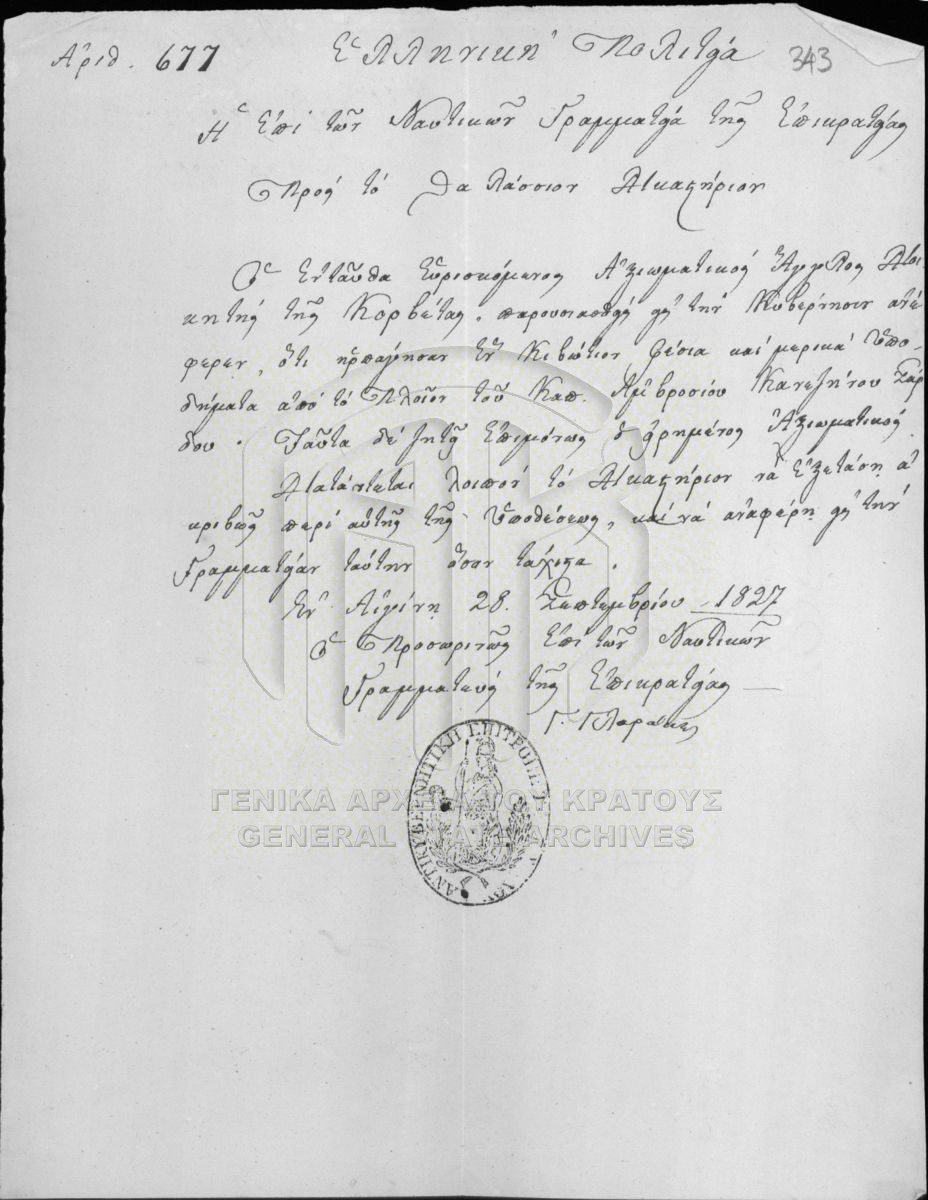 Ἀριθ. 677 Ἑλληνικὴ Πολιτεία 343
Ἡ Ἐπὶ τῶν Ναυτικῶν Γραμματεία τῆς Ἐπικρατείας
Πρὸς τὸ θαλάσσιον Δικαστήριον
Ὁ ἐνταῦθα εὑρισκόμενος Ἀξιωματικὸς Ἄγγλος Διοι
κητὴς τῆς Κορβέτας, παρουσιασθεὶς εἰς τὴν Κυβέρνησιν ἀνέ
φερεν, ὅτι ἡρπάγησαν ἓν κιβώτιον φέσια καὶ μερικὰ ὑπο-
δήματα ἀπὸ τὸ πλοῖον τοῦ Καπ. Ἀμβροσίου Σαρ
δου. Ταῦτα δὲ ζητεῖ ἐπιμόνως ὁ εἰρημένος Ἀξιωματικός.
Διατάττεται λοιπὸν τὸ Δικαστήριον νὰ ἐξετάσῃ ἀ
κριβῶς περὶ αὐτῆς τῆς ὑποθέσεως, καὶ νὰ ἀναφέρῃ εἰς τὴν
Γραμματείαν ταύτην ὅσον τάχιστα.
Ἐν Αἰγίνῃ 28. Σεπτεμβρίου 1827
Ὁ Προσωρινῶς Ἐπὶ τῶν Ναυτικῶν
Γραμματεὺς τῆς Ἐπικρατείας
Γ. Γλαράκης
ΑΝΤΙΚΥΒΕΡΝΗΤΙΚΗ ΕΠΙΤΡΟΠΗ
ΓΕΝΙΚΑ ΑΡΧΕΙΑ ΤΟΥ ΚΡΑΤΟΥΣ
GENERAL STATE ARCHIVES